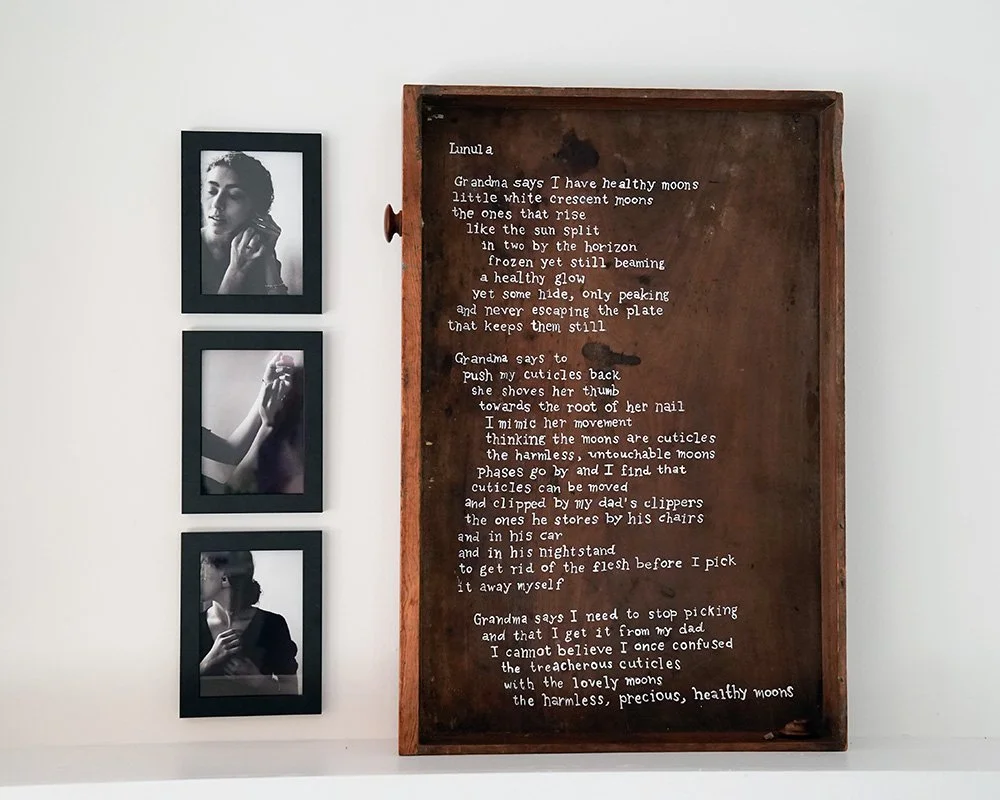 Lunula
Grandma says I have healthy moons
little white crescent moons
the ones that rise
like the sun split
in two by the horizon
frozen yet still beaming
a healthy glow
yet some hide, only peaking
and never escaping the plate
that keeps them still
Grandma says to
push my cuticles back
she shoves her thumb
towards the root of her nail
I mimic her movement
thinking the moons are cuticles
the harmless, untouchable moons
phases go by and I find that
cuticles can be moved
and clipped by my dad's clippers
the ones he stores by his chairs
and in his car
and in his nightstand
to get rid of the flesh before I pick
it away myself
Grandma says I need to stop picking
and that I get it from my dad
I cannot believe I once confused
the treacherous cuticles
with the lovely moons
the harmless, precious, healthy moons